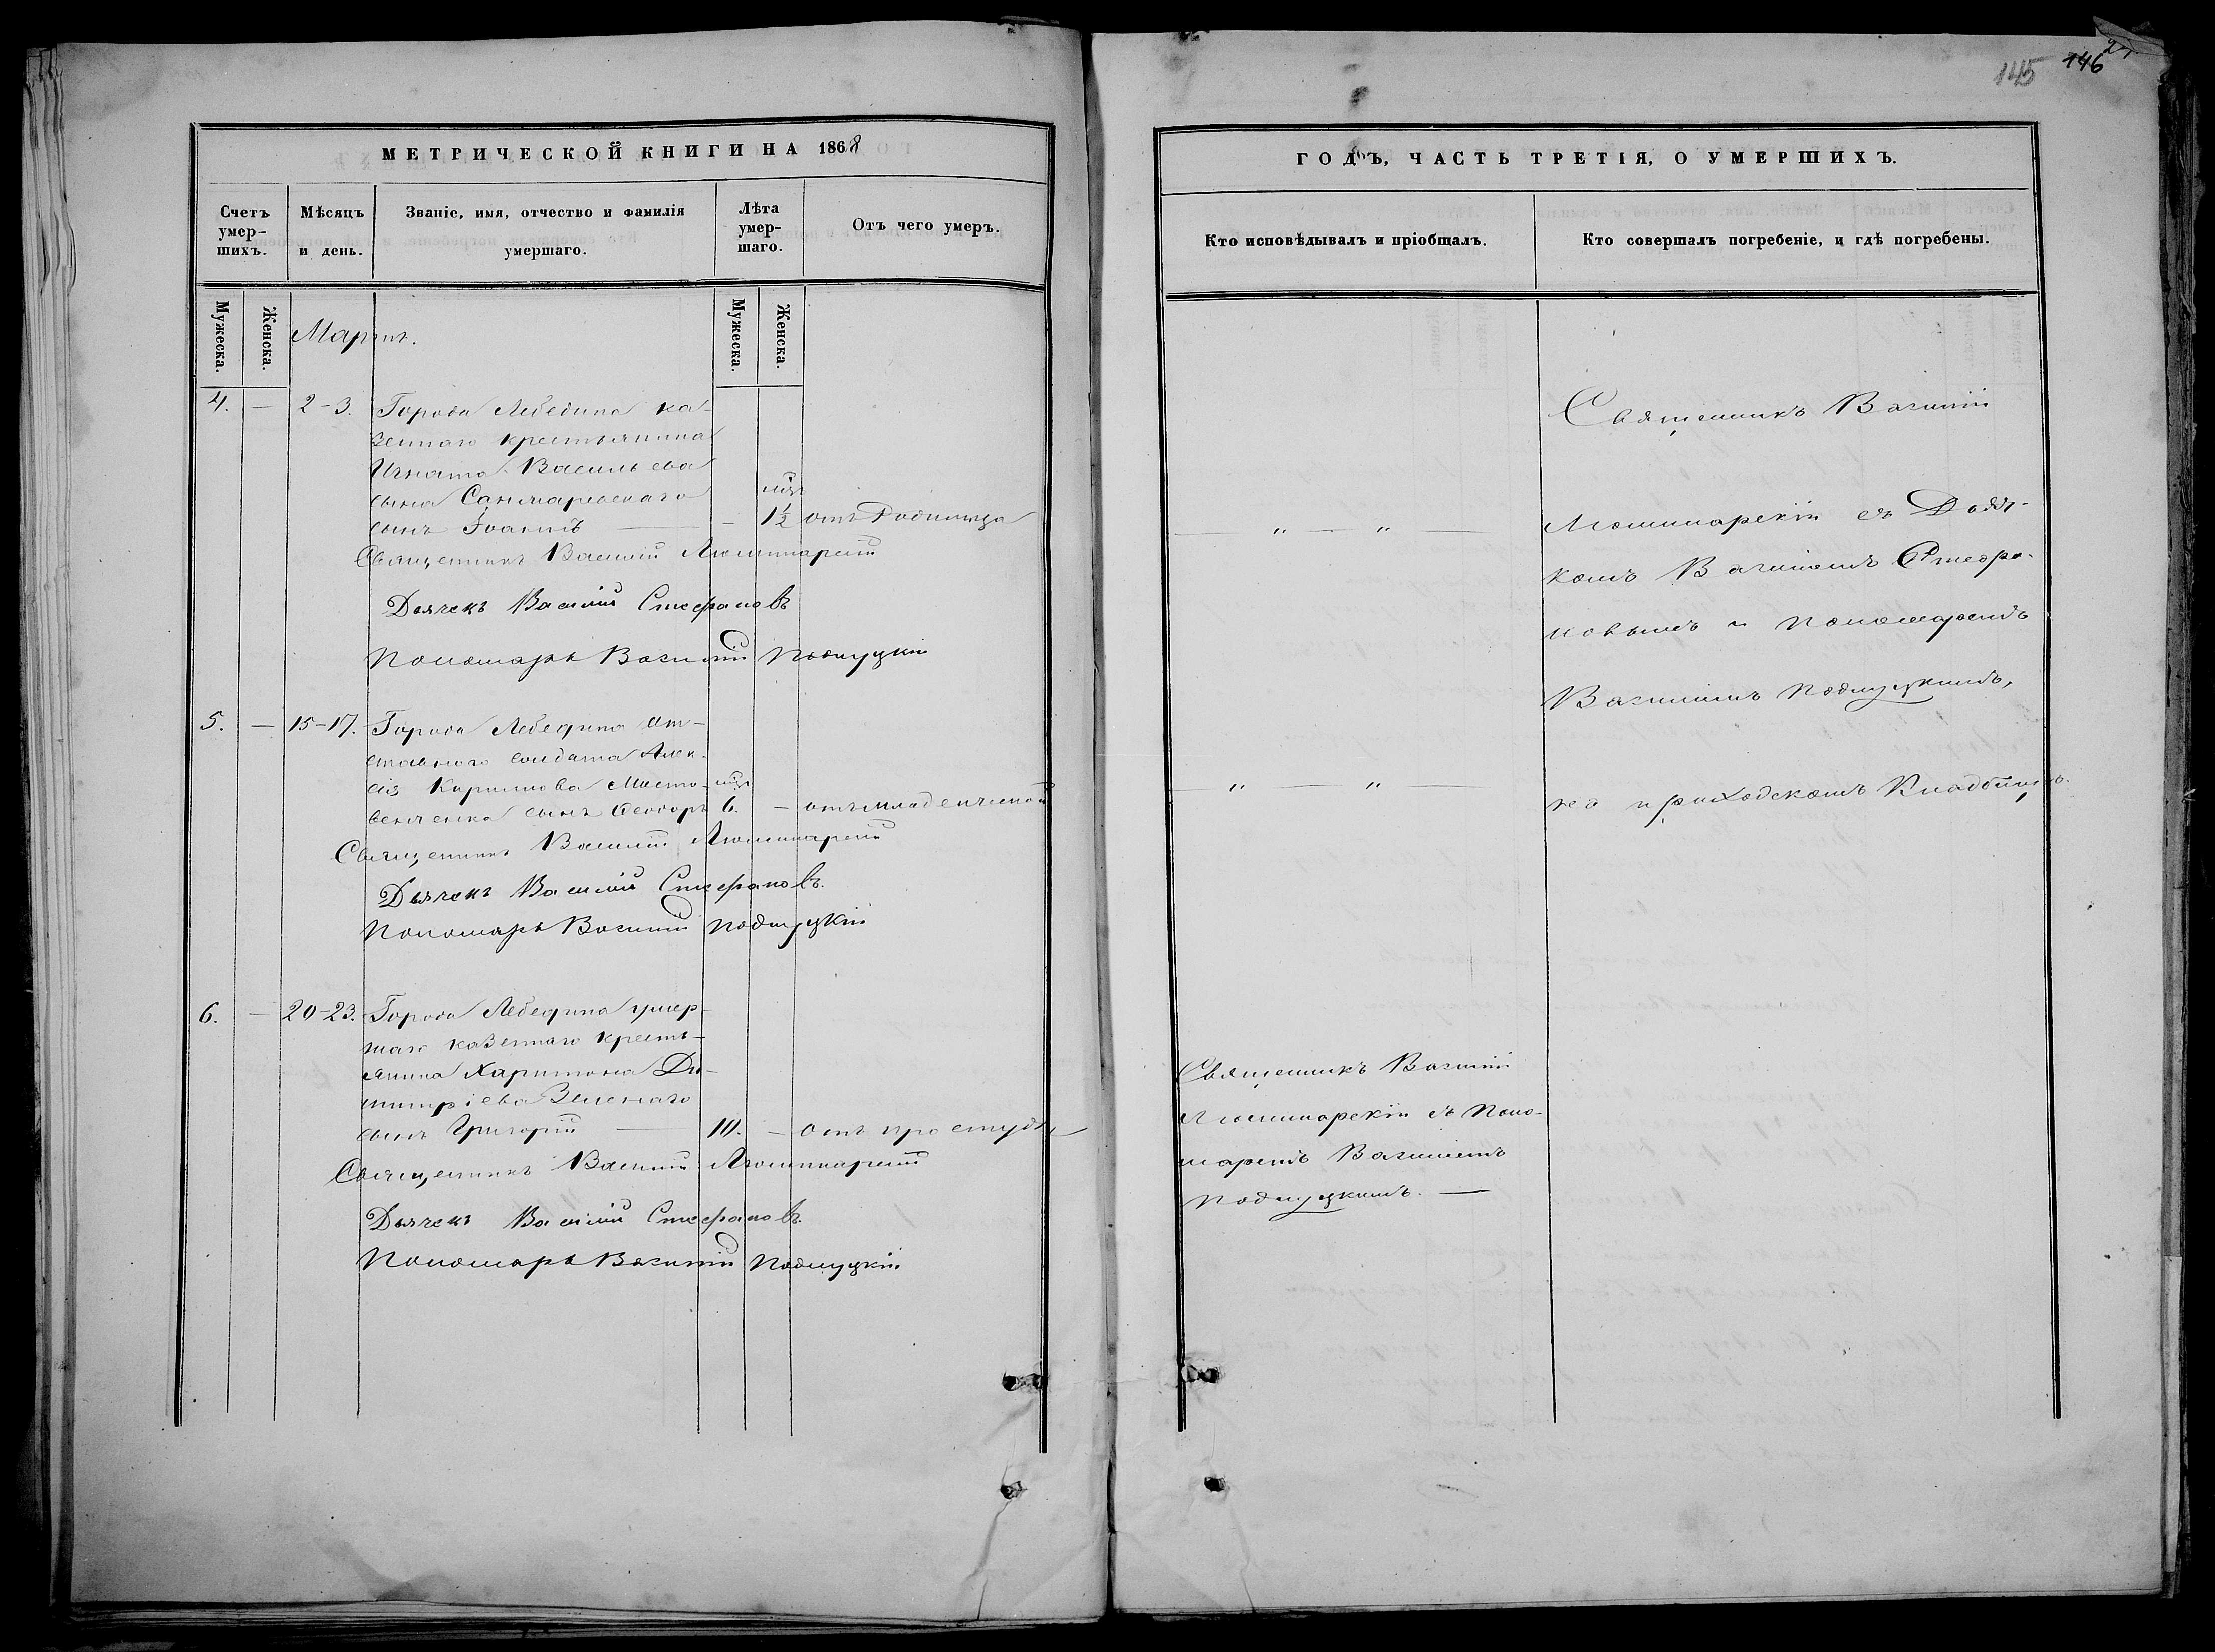 145 146
МЕТРИЧЕСКОЙ КНИГИ НА 1868
Счетъ умер-шихъ.
Мѣсяцъ и день.
Званіе, имя, отчество и фамилія умершаго.
Лѣта умер-шаго.
Отъ чего умеръ.
Мужеска.
Женска.
Мужеска.
Женска.
Мартъ.
4. — 2-3. Города Лебедина ка-
зеннаго крестьянина
Игната Васильева
сына
сынъ Іоаннъ — 1½ отъ Родимца
Священникъ Василій
Дьячекъ Василій Стефановъ
Пономарь Василій Подлуцкій
5. — 15-17. Города Лебедина от-
ставного солдата Алек-
сія Кириллова
сынъ Ѳеодоръ 6. — отъ младенческой
Священникъ Василій
Дьячекъ Василій Стефановъ.
Пономарь Василій Подлуцкій
6. — 20-23. Города Лебедина умер-
шаго казеннаго кресть-
янина Харитона Ди-
митріева Зеленаго
сынъ Григорій — 10. — отъ простуды
Священникъ Василій
Дьячекъ Василій Стефановъ.
Пономарь Василій Подлуцкій
ГОДЪ, ЧАСТЬ ТРЕТІЯ, О УМЕРШИХЪ.
Кто исповѣдывалъ и пріобщалъ.
Кто совершалъ погребеніе, и гдѣ погребены.
Священникъ Василій
" — " — съ Дьяч-
комъ Василіемъ Стефа-
новымъ и пономаремъ
Василіемъ Подлуцкимъ,
" — " — на приходскомъ Кладбищѣ.
Священникъ Василій
съ Поно-
маремъ Василіемъ
Подлуцкимъ. —